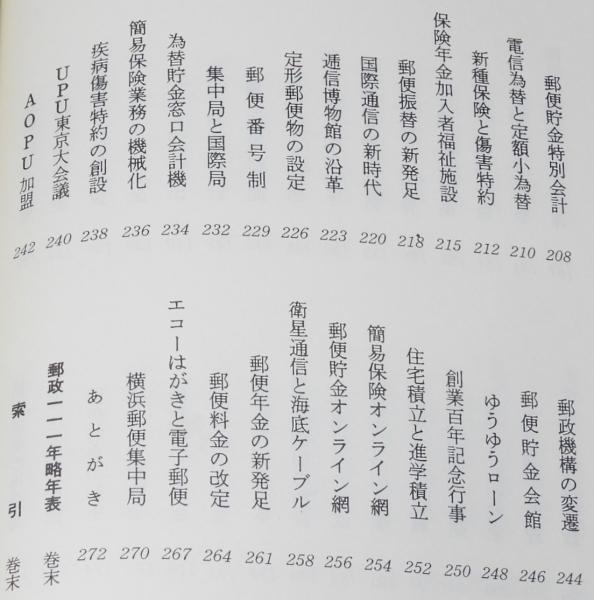 郵便貯金特別会計 208
電信為替と定額小為替 210
新種保険と傷害特約 212
保険年金加入者福祉施設 215
郵便振替の新発足 218
国際通信の新時代 220
逓信博物館の沿革 223
定形郵便物の設定 226
郵便番号制 229
集中局と国際局 232
為替貯金窓口会計機 234
簡易保険業務の機械化 236
疾病傷害特約の創設 238
UPU東京大会議 240
AOPU加盟 242
郵政機構の変遷 244
郵便貯金会館 246
ゆうゆうローン 248
創業百年記念行事 250
住宅積立と進学積立 252
簡易保険オンライン網 254
郵便貯金オンライン網 256
衛星通信と海底ケーブル 258
郵便年金の新発足 261
郵便料金の改定 264
エコーはがきと電子郵便 267
横浜郵便集中局 270
あとがき 272
郵政一一一年略年表 巻末
索引 巻末